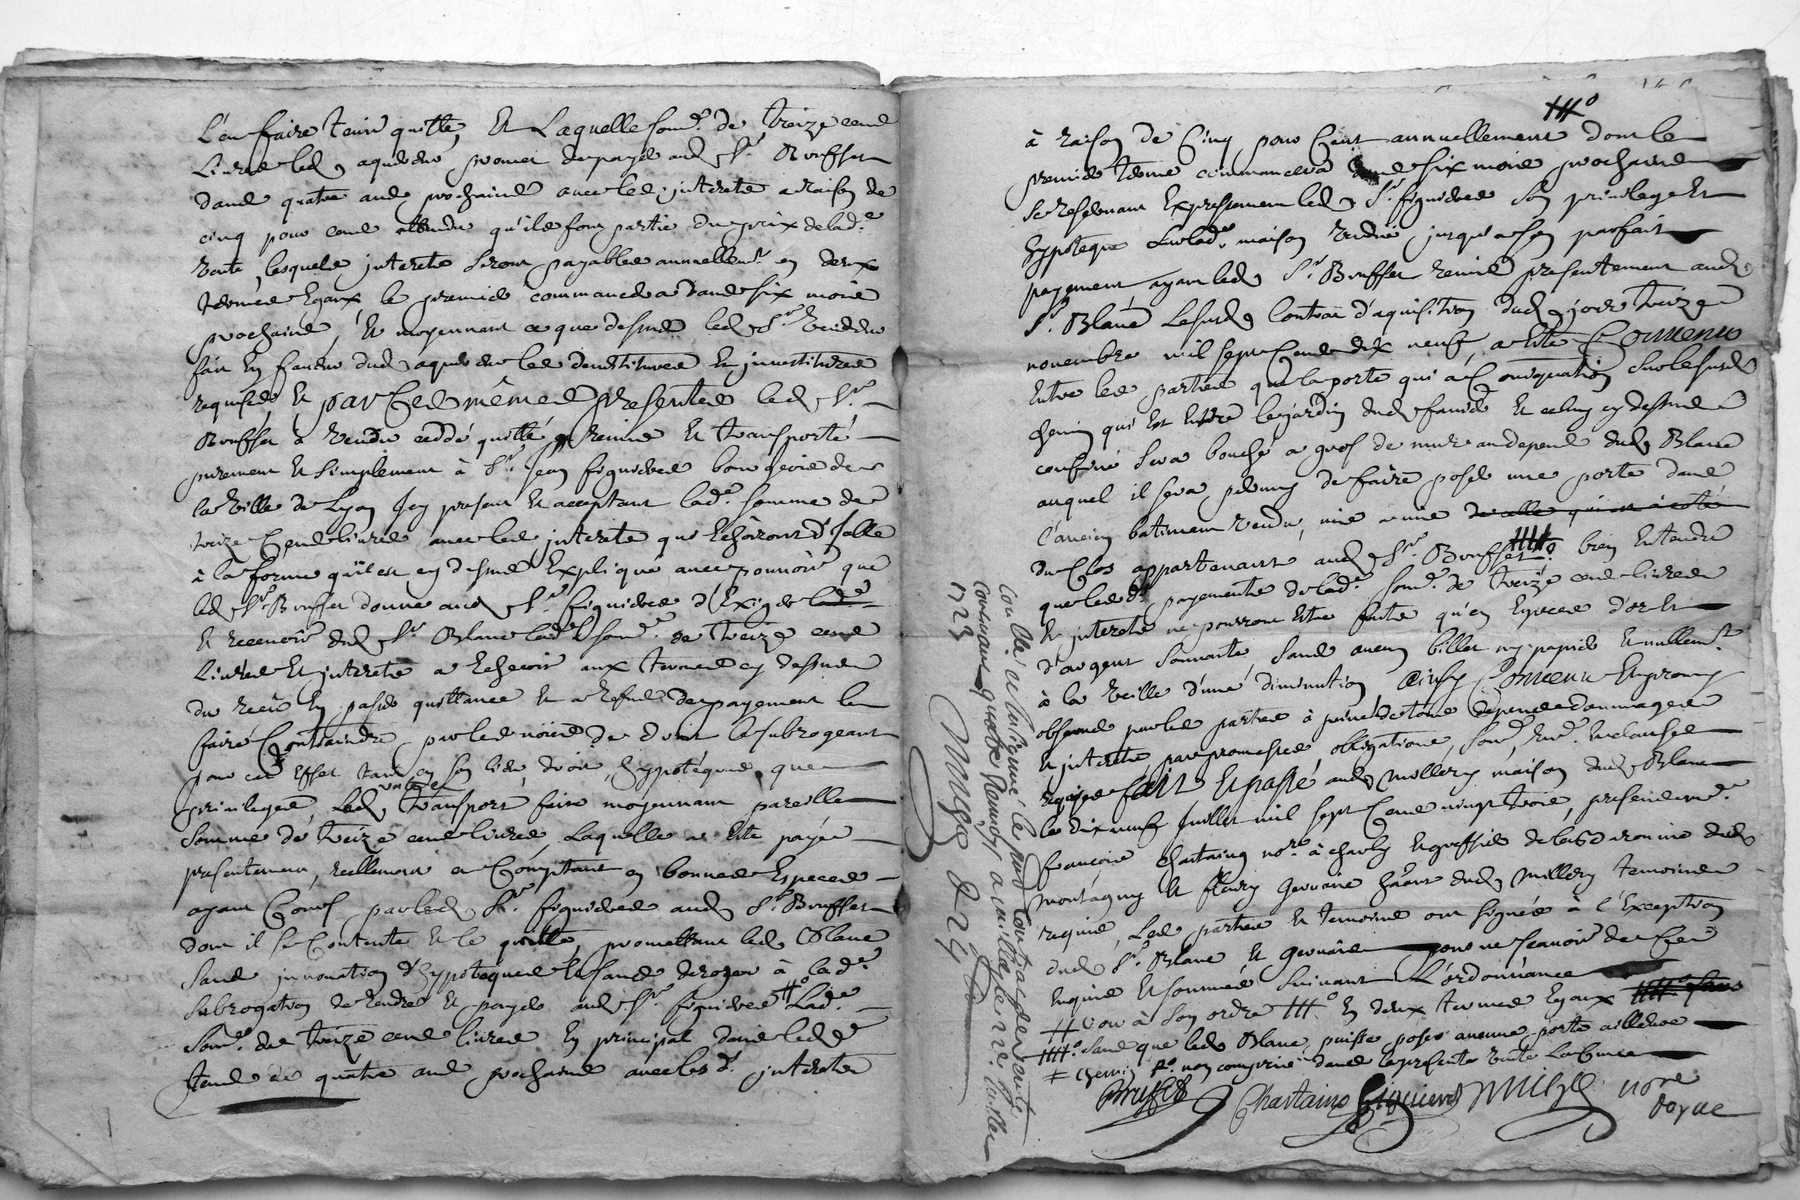 L'en faire tenir quitte, Et Laquelle som.e de treize cent
Livres led. aquereur promet de payer aud. Sr. Bouffet
dans quatre ans prochains avec les interets a raison de
cinq pour cent attendu qu'ils font partie du prix de lad.e
vente, lesquels interets seront payables annuellem.t en deux
termes Egaux le premier commancera dans six mois
prochains, Et moyennant ce que dessus led. Sr. vendeur
fait En faveur dud. aquereur les demistitures Et investitures
requises, Et par Ces mêmes presentes led. Sr.
Bouffet à vendu ceddé quitté remis Et transporté
purement Et simplement à Sr. Jean figuieres bourgeois de
la Ville de Lyon Icy present Et acceptant lad.e somme de
treize Cens livres avec les interets qui Echoiront d'Icelle
à la forme qu'il est cy dessus Expliqué avec pouvoir que
led. Sr. Bouffet donne aud. Sr. figuieres d'Exiger lad.e
Et recevoir dud. Sr. Blanc lad.e som.e de treize cens
Livres Et interets a Echeoir aux termes cy dessus
du receu En passer quittance Et a refus de payement le
faire Contraindre par les voies de droit le subrogeant
pour cet Effet tant en son lieu, droit, hyppotéques que
privileges Led. transport fait moyennant pareille
somme de treize cens livres, Laquelle a Eté payée
presentement, reellement et Comptant en bonnes Especes
ayant Cours par led. Sr. figuieres aud. Sr. Bouffet
dont il se Contente Et le quitte, promettant led. Blanc
sans innovation d'hyppoteques Et sans deroger à lad.e
subrogation de rendre Et payer aud. Sr. figuieres # Lad.e
Som.e de treize cens livres En principal dans led.
tems de quatre ans prochains avec les d. interets
###o
à raison de Cinq pour Cent annuellement dont le
premier terme commancera dans six mois prochains
se reservant Expressement led. Sr. figuieres son privilege Et
hypoteque sur lad.e maison vendue jusqu'a son parfait
payement ayant led. Sr. Bouffet remis presentement aud.
Sr. Blanc Lesusd. Contrat d'aquisition dud. jour treize
novembre mil sept Cens dix neuf, a Eté Convenu
Entre les parties que la porte qui a Communication sur lesusd.
chemin qui Est Entre le jardin dud. Et celuy cy dessus
confiné sera bouché a gros de mur aux depens dud. Blanc
auquel il sera permis de faire poser une porte dans
l'ancien batiment vendu, de celle qui est à coté
du Clos appartenant aud. Sr. Bouffet ####o. bien Entendu
que les d. payements de lad.e som.e de treize cens livres
Et interets ne pourront Etre faits qu'en Especes d'or Et
d'argent sonnants sans aucun billet ny papier Et nullem.t
à la veille d'une diminution, Ainsy Convenu Et promis
observer par les parties à peine de tous depens dommages
Et interets par promesses obligations, soum. ren. et clauses
requises fait Et passé aud. Millery maison dud. Blanc
le dix neuf Juillet mil sept Cens vingt trois, presens m.e
françois Chastaing no.re à charly Et greffier de la
montagny Et fleury Gervais dud. Millery temoins
requis, Led. parties Et temoins ont signés à l'Exception
dud. Sr. Blanc Et Gervais pour ne scavoir de Ce
Enquis Et sommés suivant L'ordonnance
# ou à son ordre ###o. En deux termes Egaux
####o. sans que led. Blanc puisse poser aucune porte ailleurs
+ chemin non comprise dans la presente vente
Bouffet Chastaing figuieres Minge no.re
royal
Con.lé à Lusigné le contrat de vente
Contenant quatre Rolles a juillet
1723
Minge